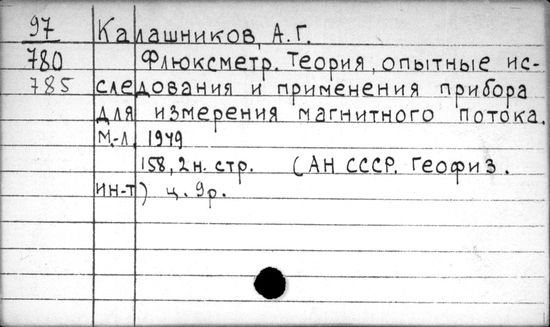 97 Калашников, А.Г.
780 Флюксметр. Теория, опытные ис-
785 следования и применения прибора
для измерения магнитного потока.
М.-Л. 1949
158, 2 н. стр. (АН СССР. Геофиз.
ин-т) ц. 9р.